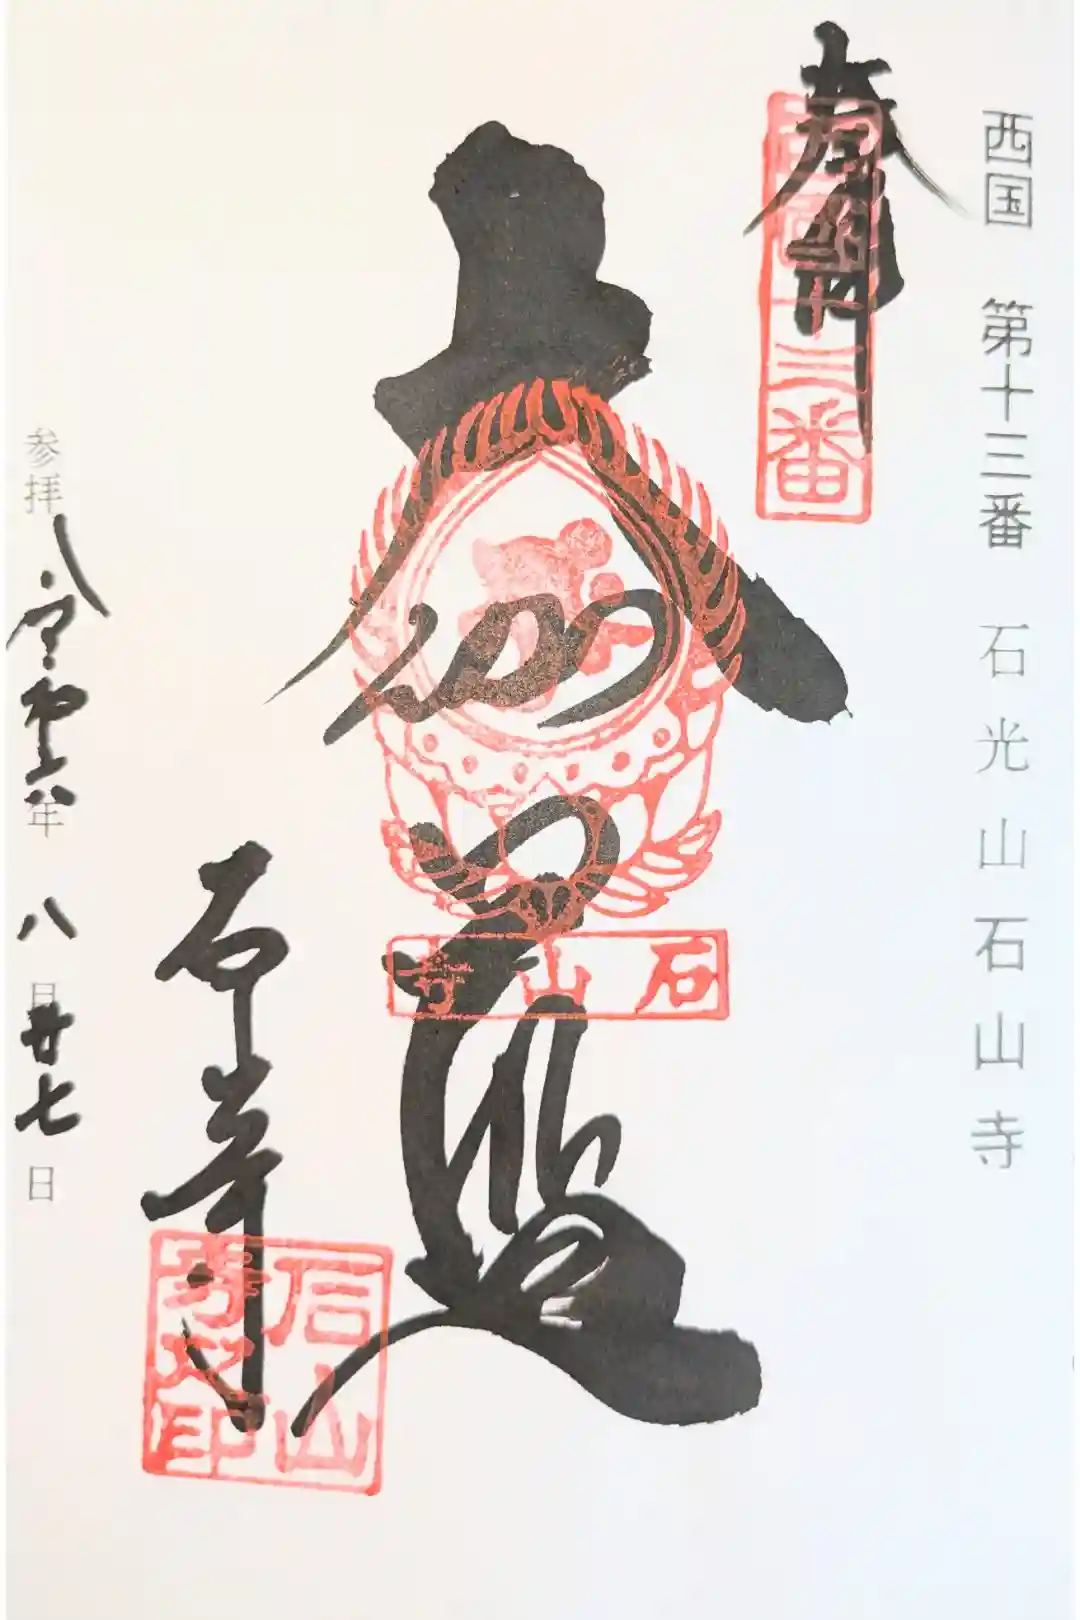 西国 第十三番 石光山石山寺
奉拝
西国十三番
大伽藍
石山寺
石山寺
石山寺之印
参拝 令和 八年 八月廿七日